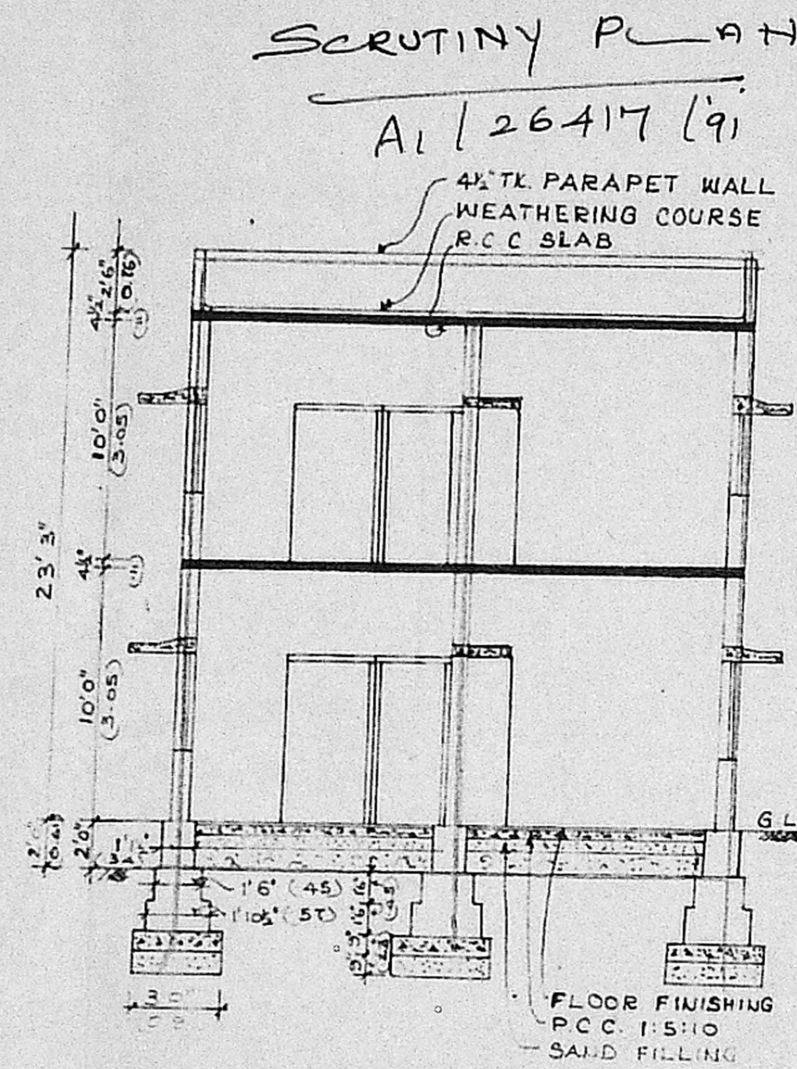 SCRUTINY PLAN
A1/26417/'91
4½" TK. PARAPET WALL
WEATHERING COURSE
R.C.C SLAB
2'6"
4½"
10'0"
(3.05)
23'3"
4½"
10'0"
(3.05)
G L
2'0"
2'0"
1'6" (45)
1'10½" (57)
1'6"
1'6"
3'0"
FLOOR FINISHING
P.C.C. 1:5:10
SAND FILLING